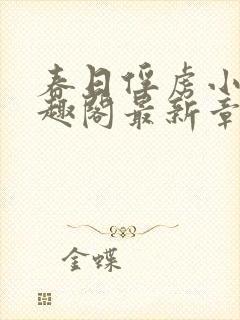 春日俘虏小
趣阁最新章
金蝶